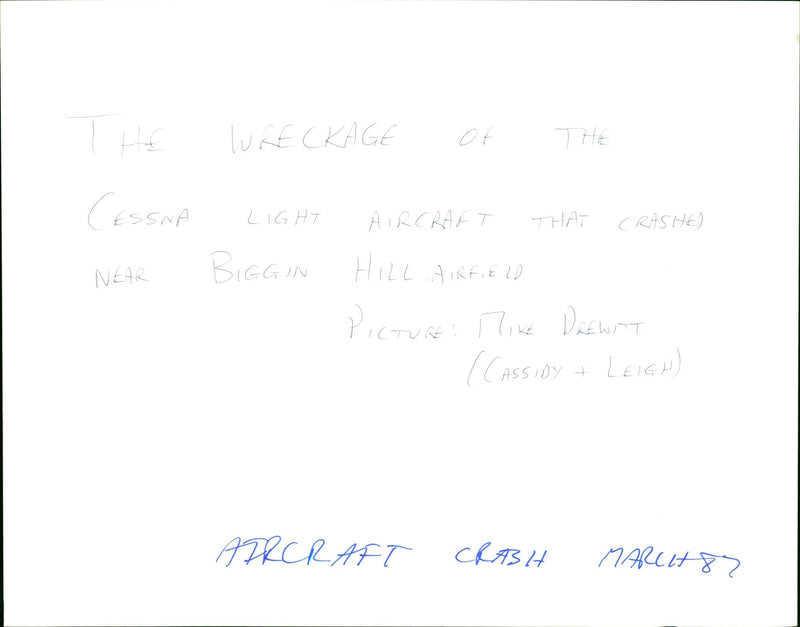 THE WRECKAGE OF THE
CESSNA LIGHT AIRCRAFT THAT CRASHED
NEAR BIGGIN HILL AIRFIELD
PICTURE: MIKE DREWITT
(CASSIDY + LEIGH)
AIRCRAFT CRASH MARCH 87